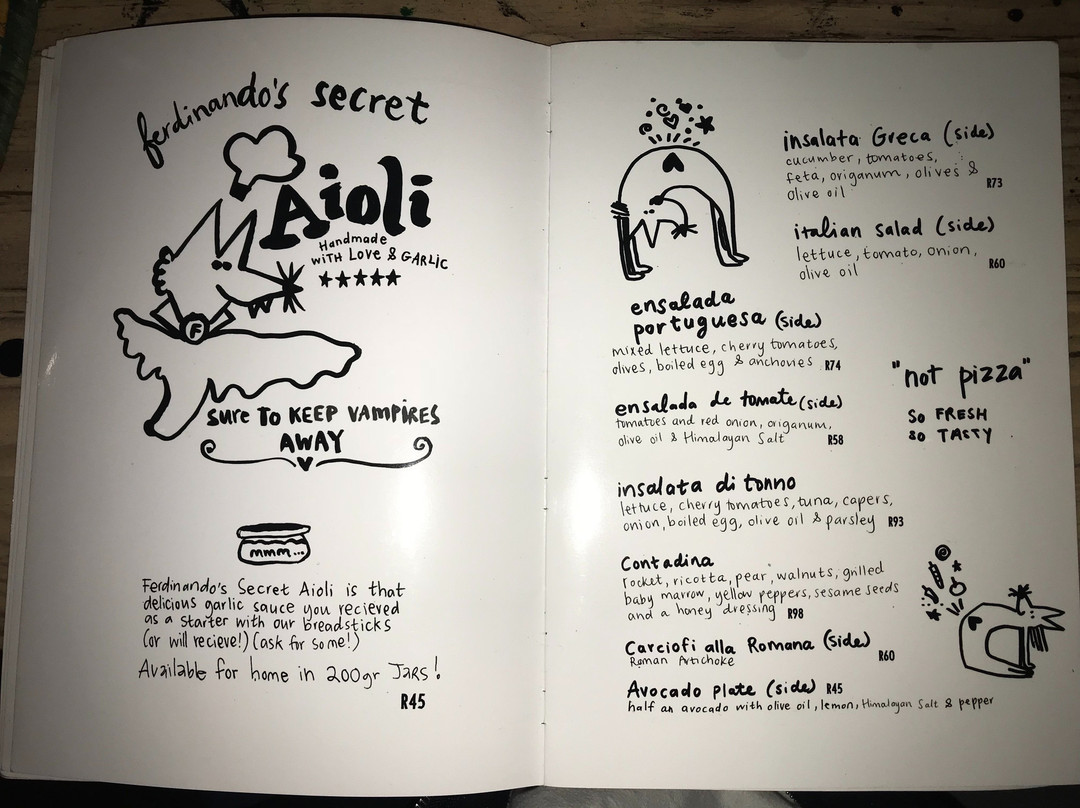 ferdinando's secret
Aioli
Handmade
with Love & GARLIC
★★★★★
F
Sure To KEEP VAMPIRES
AWAY
mmm...
Ferdinando's Secret Aioli is that
delicious garlic sauce you recieved
as a starter with our breadsticks
(or will recieve!) (ask for some!)
Available for home in 200gr Jars!
R45
insalata Greca (side)
cucumber, tomatoes,
feta, origanum, olives &
olive oil R73
italian salad (side)
lettuce, tomato, onion,
olive oil R60
ensalada
portuguesa (side)
mixed lettuce, cherry tomatoes,
olives, boiled egg & anchovies R74
"not pizza"
so FRESH
so TASTY
ensalada de tomate (side)
tomatoes and red onion, origanum,
olive oil & Himalayan Salt R58
insalata di tonno
lettuce, cherry tomatoes, tuna, capers,
onion, boiled egg, olive oil & parsley R93
Contadina
rocket, ricotta, pear, walnuts, grilled
baby marrow, yellow peppers, sesame seeds
and a honey dressing R98
Carciofi alla Romana (side)
Roman Artichoke R60
Avocado plate (side) R45
half an avocado with olive oil, lemon, Himalayan Salt & pepper